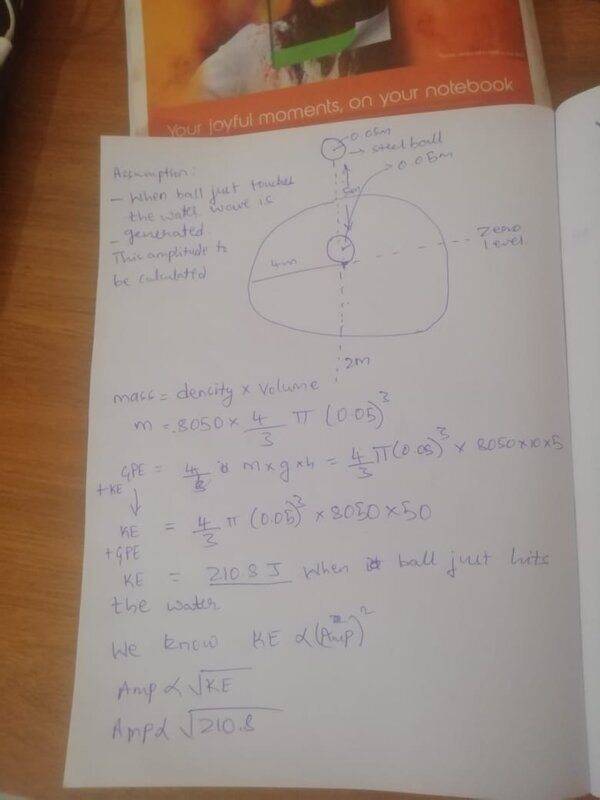 Your joyful moments, on your notebook
0.05m
steel ball
0.05m
5m
Assumption:
- When ball just touches
the water wave is
- generated
This amplitude to
be calculated
Zero
Level
4m
2m
mass = dencity × volume
m = 8050 × 4/3 π (0.05)³
GPE = m × g × h = 4/3 π (0.05)³ × 8050 × 10 × 5
+KE
↓
KE = 4/3 π (0.05)³ × 8050 × 50
+GPE
KE = 210.8 J when ball just hits
the water
We know KE ∝ (Amp)²
Amp ∝ √KE
Amp ∝ √210.8